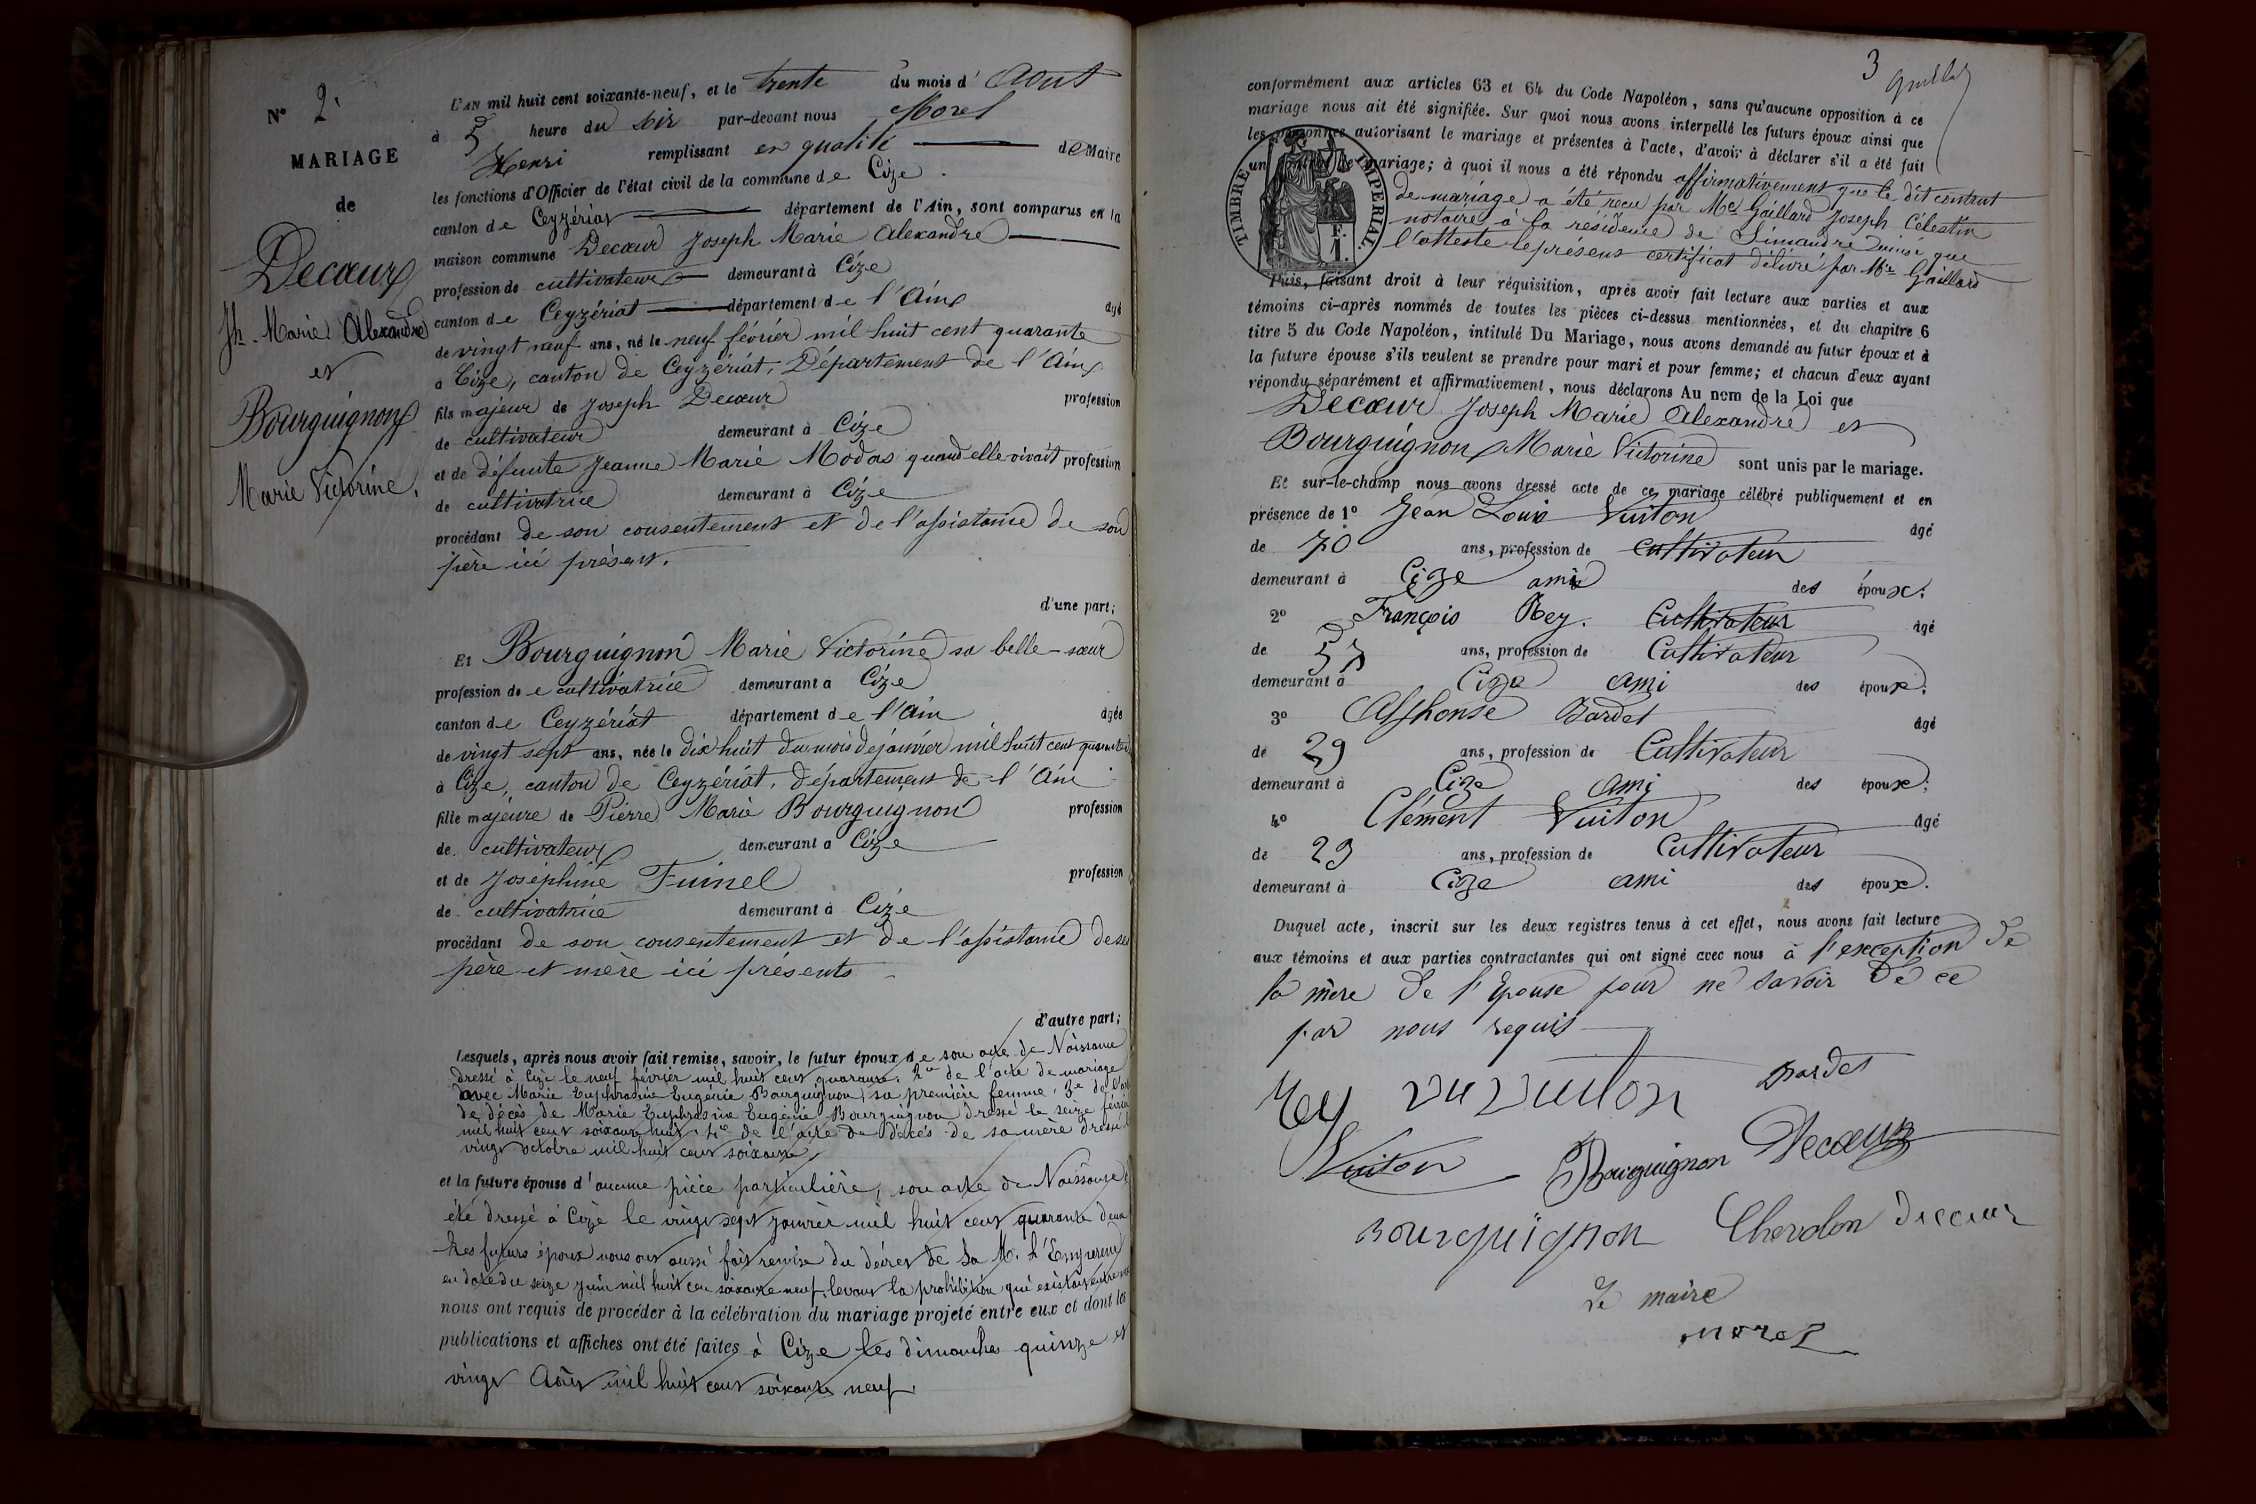 N° 2.
MARIAGE
de
Decœur
Jh. Marie Alexandre
et
Bourguignon
Marie Victorine.
L'AN mil huit cent soixante-neuf, et le trente du mois d' Aout
à 5 heure du soir par-devant nous Morel
Henri remplissant en qualité de Maire
les fonctions d'Officier de l'état civil de la commune de Cize.
canton de Ceyzériat département de l'Ain, sont comparus en la
maison commune Decœur Joseph Marie Alexandre
profession de cultivateur demeurant à Cize
canton de Ceyzériat département de l'Ain âgé
de vingt neuf ans, né le neuf février mil huit cent quarante
a Cize, canton de Ceyzériat, Département de l'Ain
fils majeur de Joseph Decœur profession
de cultivateur demeurant à Cize
et de défunte Jeanne Marie Modas quand elle vivait profession
de cultivatrice demeurant à Cize
procédant de son consentement et de l'assistance de son
père ici présent.
d'une part;
Et Bourguignon Marie Victorine sa belle-sœur
profession de cultivatrice demeurant a Cize
canton de Ceyzériat département de l'Ain âgée
de vingt sept ans, née le dix huit du mois de janvier mil huit cent quarante
à Cize, canton de Ceyzériat, département de l'Ain
fille majeure de Pierre Marie Bourguignon profession
de cultivateur demeurant a Cize
et de Joséphine Fuinel profession
de cultivatrice demeurant à Cize
procédant de son consentement et de l'assistance de ses
père et mère ici présents
d'autre part;
Lesquels, après nous avoir fait remise, savoir, le futur époux de son acte de Naissance
dressé à Cize le neuf février mil huit cent quarante. 2e de l'acte de mariage
avec Marie Euphrasine Eugénie Bourguignon, sa première femme, 3e de l'acte
de décès de Marie Euphrasine Eugénie Bourguignon dressé le seize février
mil huit cent soixante huit. 4e de l'acte de décès de sa mère dressé
vingt octobre mil huit cent soixante
et la future épouse d'aucune pièce particulière, son acte de Naissance
été dressé à Cize le vingt sept janvier mil huit cent quarante deux
Les futurs époux nous ont aussi fait remise du décret de Sa M. L'Empereur
en date du seize juin mil huit cent soixante neuf, levant la prohibition qui existait entre
nous ont requis de procéder à la célébration du mariage projeté entre eux et dont les
publications et affiches ont été faites à Cize les dimanches quinze et
vingt Août mil huit cent soixante neuf.
3
conformément aux articles 63 et 64 du Code Napoléon, sans qu'aucune opposition à ce
mariage nous ait été signifiée. Sur quoi nous avons interpellé les futurs époux ainsi que
les personnes autorisant le mariage et présentes à l'acte, d'avoir à déclarer s'il a été fait
un contrat de mariage; à quoi il nous a été répondu affirmativement que le dit contrat
de mariage a été reçu par Me Gaillard Joseph Célestin
notaire à la résidence de Simandre ainsi que
l'atteste le présent certificat délivré par Me Gaillard
TIMBRE IMPERIAL.
F.
1.
Puis, faisant droit à leur réquisition, après avoir fait lecture aux parties et aux
témoins ci-après nommés de toutes les pièces ci-dessus mentionnées, et du chapitre 6
titre 5 du Code Napoléon, intitulé Du Mariage, nous avons demandé au futur époux et à
la future épouse s'ils veulent se prendre pour mari et pour femme; et chacun d'eux ayant
répondu séparément et affirmativement, nous déclarons Au nom de la Loi que
Decœur Joseph Marie Alexandre et
Bourguignon Marie Victorine sont unis par le mariage.
Et sur-le-champ nous avons dressé acte de ce mariage célébré publiquement et en
présence de 1° Jean Louis Vuiton âgé
de 70 ans, profession de Cultivateur
demeurant à Cize ami des époux;
2° François Rey. Cultivateur âgé
de 57 ans, profession de Cultivateur
demeurant à Cize ami des époux;
3° Alphonse Bardet âgé
de 29 ans, profession de Cultivateur
demeurant à Cize ami des époux;
4° Clément Vuiton âgé
de 29 ans, profession de Cultivateur
demeurant à Cize ami des époux.
Duquel acte, inscrit sur les deux registres tenus à cet effet, nous avons fait lecture
aux témoins et aux parties contractantes qui ont signé avec nous à l'exception de
la mère de l'Epouse pour ne savoir de ce
par nous requis
Rey Vuiton Bardet
Vuiton Bourguignon Decœur
Bourguignon Decœur
Le maire
Morel